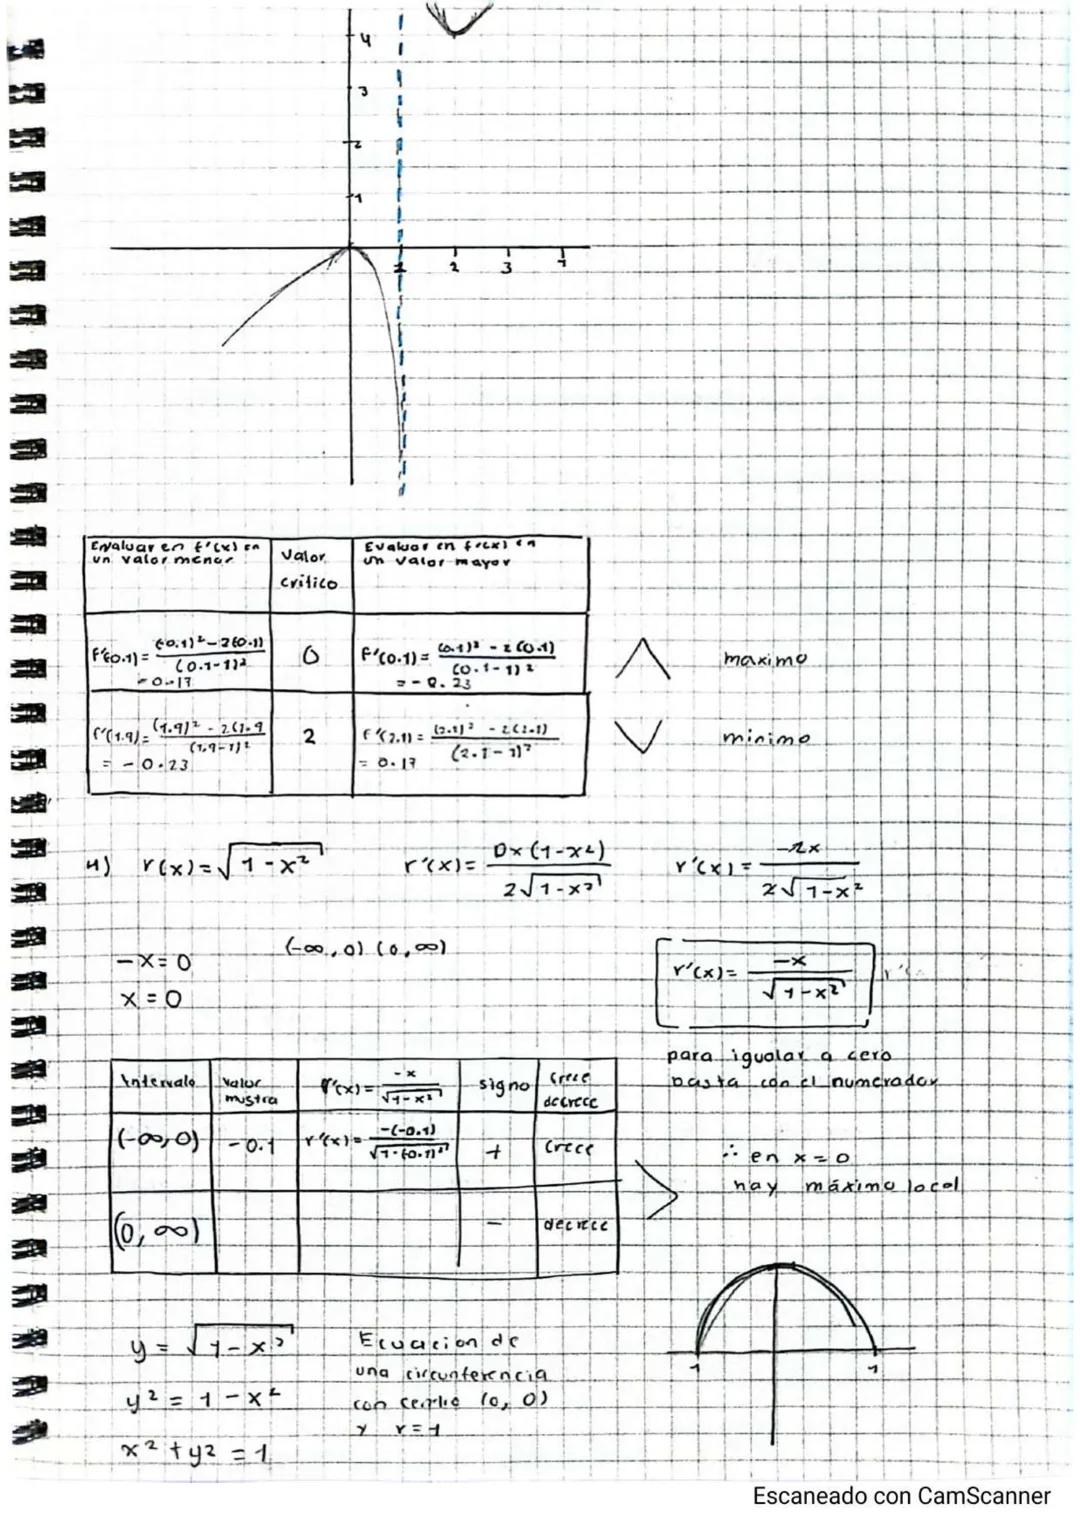 4
3
2
1
1 2 3 4
Evaluar en f'(x) en un valor menor | Valor critico | Evaluar en f'(x) en un valor mayor
f'(-0.1) = ((-0.1)² - 2(-0.1)) / (-0.1-1)² = 0.17 | 0 | f'(0.1) = ((0.1)² - 2(0.1)) / (0.1-1)² = -0.23 maximo
f'(1.9) = ((1.9)² - 2(1.9) / (1.9-1)² = -0.23 | 2 | f'(2.1) = ((2.1)² - 2(2.1)) / (2.1-1)² = 0.17 minimo
4) r(x) = √(1-x²) r'(x) = Dx(1-x²) / 2√(1-x²) r'(x) = -2x / 2√(1-x²)
-x = 0 (-∞, 0) (0, ∞) r'(x) = -x / √(1-x²)
x = 0
para igualar a cero
basta con el numerador
Intervalo | Valor mustra | r'(x) = -x / √(1-x²) | signo | Crece decrece
(-∞, 0) | -0.1 | r'(x) = -(-0.1) / √(1-(-0.1)²) | + | Crece
(0, ∞) | - | decrece
∴ en x = 0
hay máximo local
-1 1
y = √(1-x²)
y² = 1 - x²
x² + y² = 1
Ecuacion de
una circunferencia
con centro (0, 0)
y r = 1
Escaneado con CamScanner